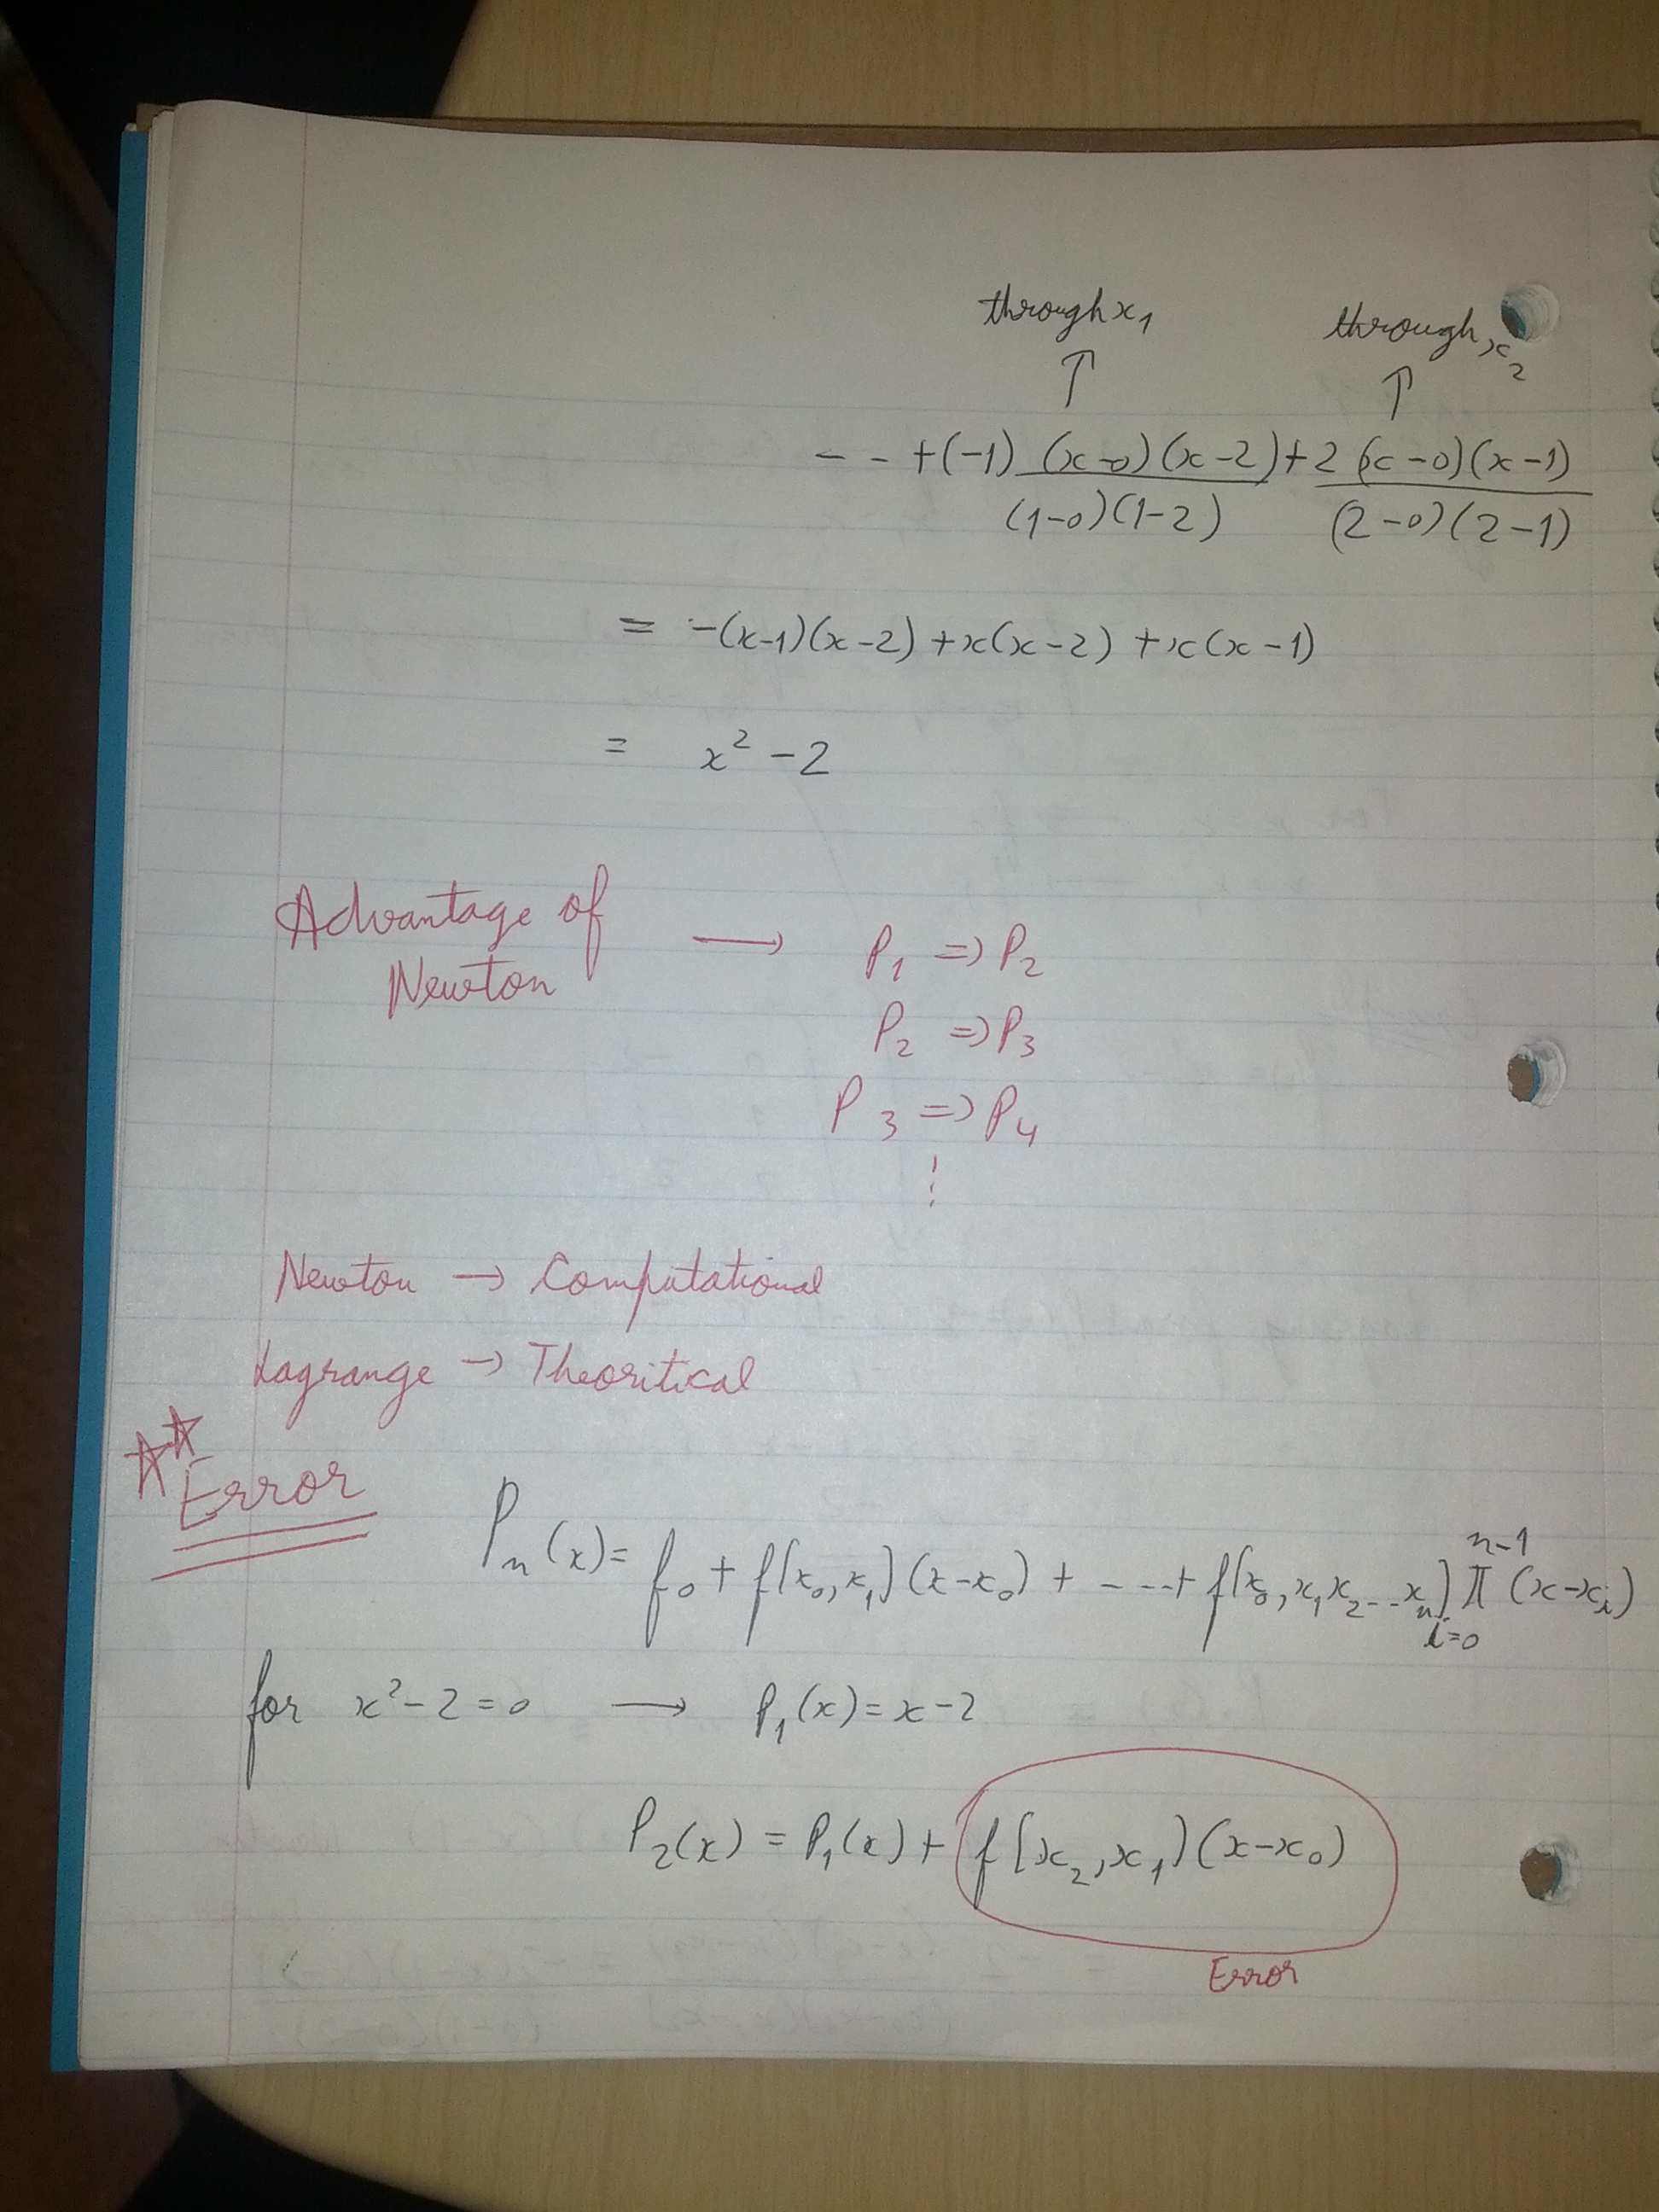 through x₁ through x₂
↑ ↑
- - +(-1) (x-0)(x-2) + 2 (x-0)(x-1)
(1-0)(1-2) (2-0)(2-1)
= -(x-1)(x-2) + x(x-2) + x(x-1)
= x² - 2
Advantage of → P₁ ⇒ P₂
Newton
P₂ ⇒ P₃
P₃ ⇒ P₄
⋮
Newton → Computational
Lagrange → Theoritical
☆☆ Error
Pₙ(x) = f₀ + f[x₀, x₁](x-x₀) + - - - + f[x₀, x₁ x₂ - - xₙ] n-1 π i=0 (x-xᵢ)
for x² - 2 = 0 → P₁(x) = x - 2
P₂(x) = P₁(x) + f[x₂, x₁](x-x₀)
Error